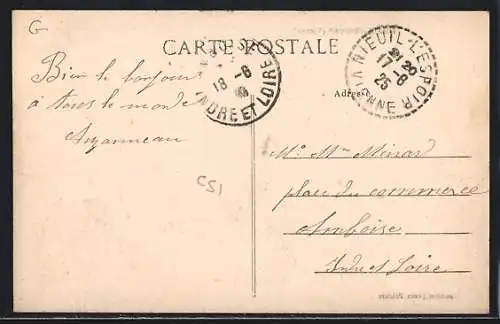 G
CARTE POSTALE
NIEUIL-L'ESPOIR
VIENNE
21 25
17-8
25
18-8
INDRE ET LOIRE
Adresse
Bien le bonjour
à tous le monde
Mr Mme Ménard
place du commerce
Amboise
Indre et Loire
C51